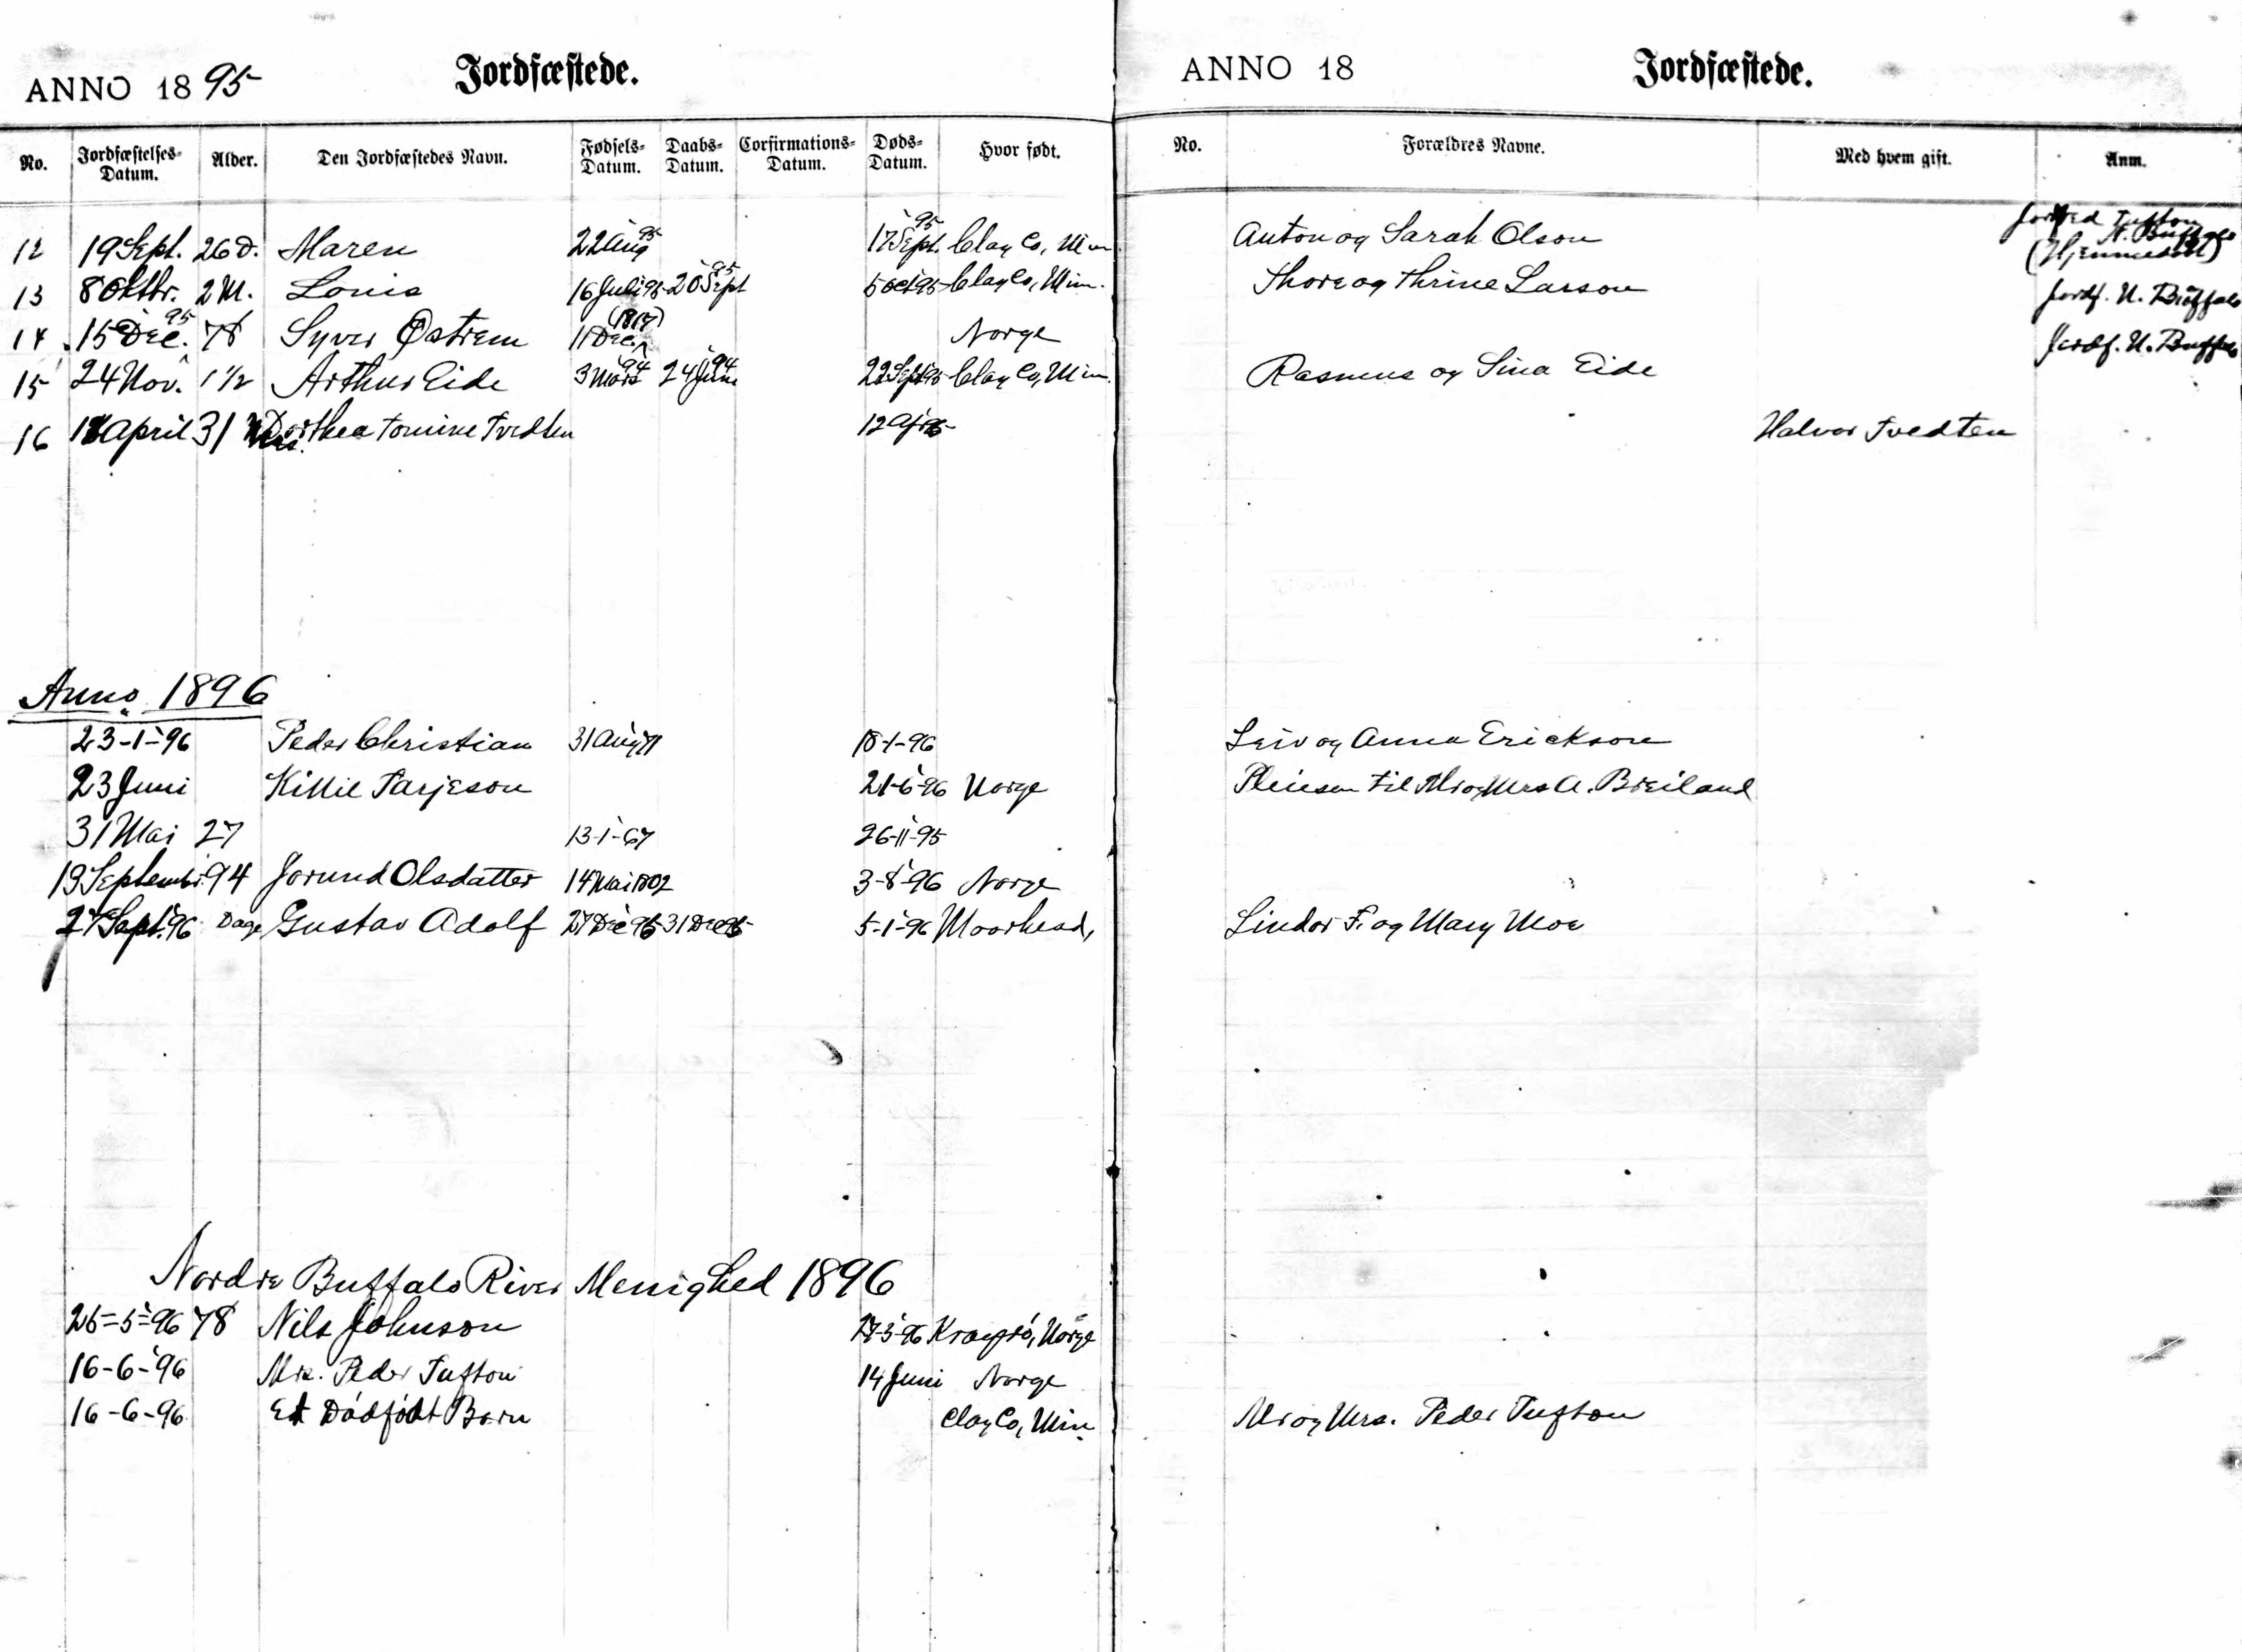 ANNO 18 95 Jordfæstede.
No. Jordfæstelses-Datum. Alder. Den Jordfæstedes Navn. Fødsels-Datum. Daabs-Datum. Corfirmations-Datum. Døds-Datum. Hvor født.
12 19 Sept. 26 D. Maren 22 Aug 95 17 Sept. 95 Clay Co, Min
13 8 Oktbr. 2 M. Louis 16 Juli 95 20 Sept 95 5 Oct 95 Clay Co, Min.
14 15 Dec. 95 78 Syver Østrem 11 Dec. (1817) Norge
15 24 Nov. 1 1/2 Arthur Eide 3 Mars 94 24 June 94 22 Sept 95 Clay Co, Min.
16 April 31 Dorthea Tomine Tvedten 12
Anno 1896
23-1-96 Peder Christian 31 Aug 18-1-96
23 Juni Killie Tarjeson 21-6-96 Norge
31 Mai 27 13-1-67 26-11-95
19 Septembr. 94 Jorund Olsdatter 14 Mai 1802 3-8-96 Norge
27 Sept. 96 Dage Gustav Adolf 27 Dec 95 31 Dec 95 5-1-96 Moorhead,
Nordre Buffalo River Menighed 1896
26-5-96 78 Nils Johnson Norge
16-6-96 Mrs. Peder Tufton 14 Juni Norge
16-6-96 Et Dødfødt Barn Clay Co, Min.
ANNO 18 Jordfæstede.
No. Forældres Navne. Med hvem gift. Anm.
Anton og Sarah Olson Tufton
N. Buffalo
Thore og Thrine Larson Jordf. N. Buffalo
Jordf. N. Buffalo
Rasmus og Sina Eide
Halvor Tvedten
Leiv og Anna Erickson
til Mr og Mrs A. Breiland
Lindor F. og Mary Moe
Mr og Mrs. Peder Tufton